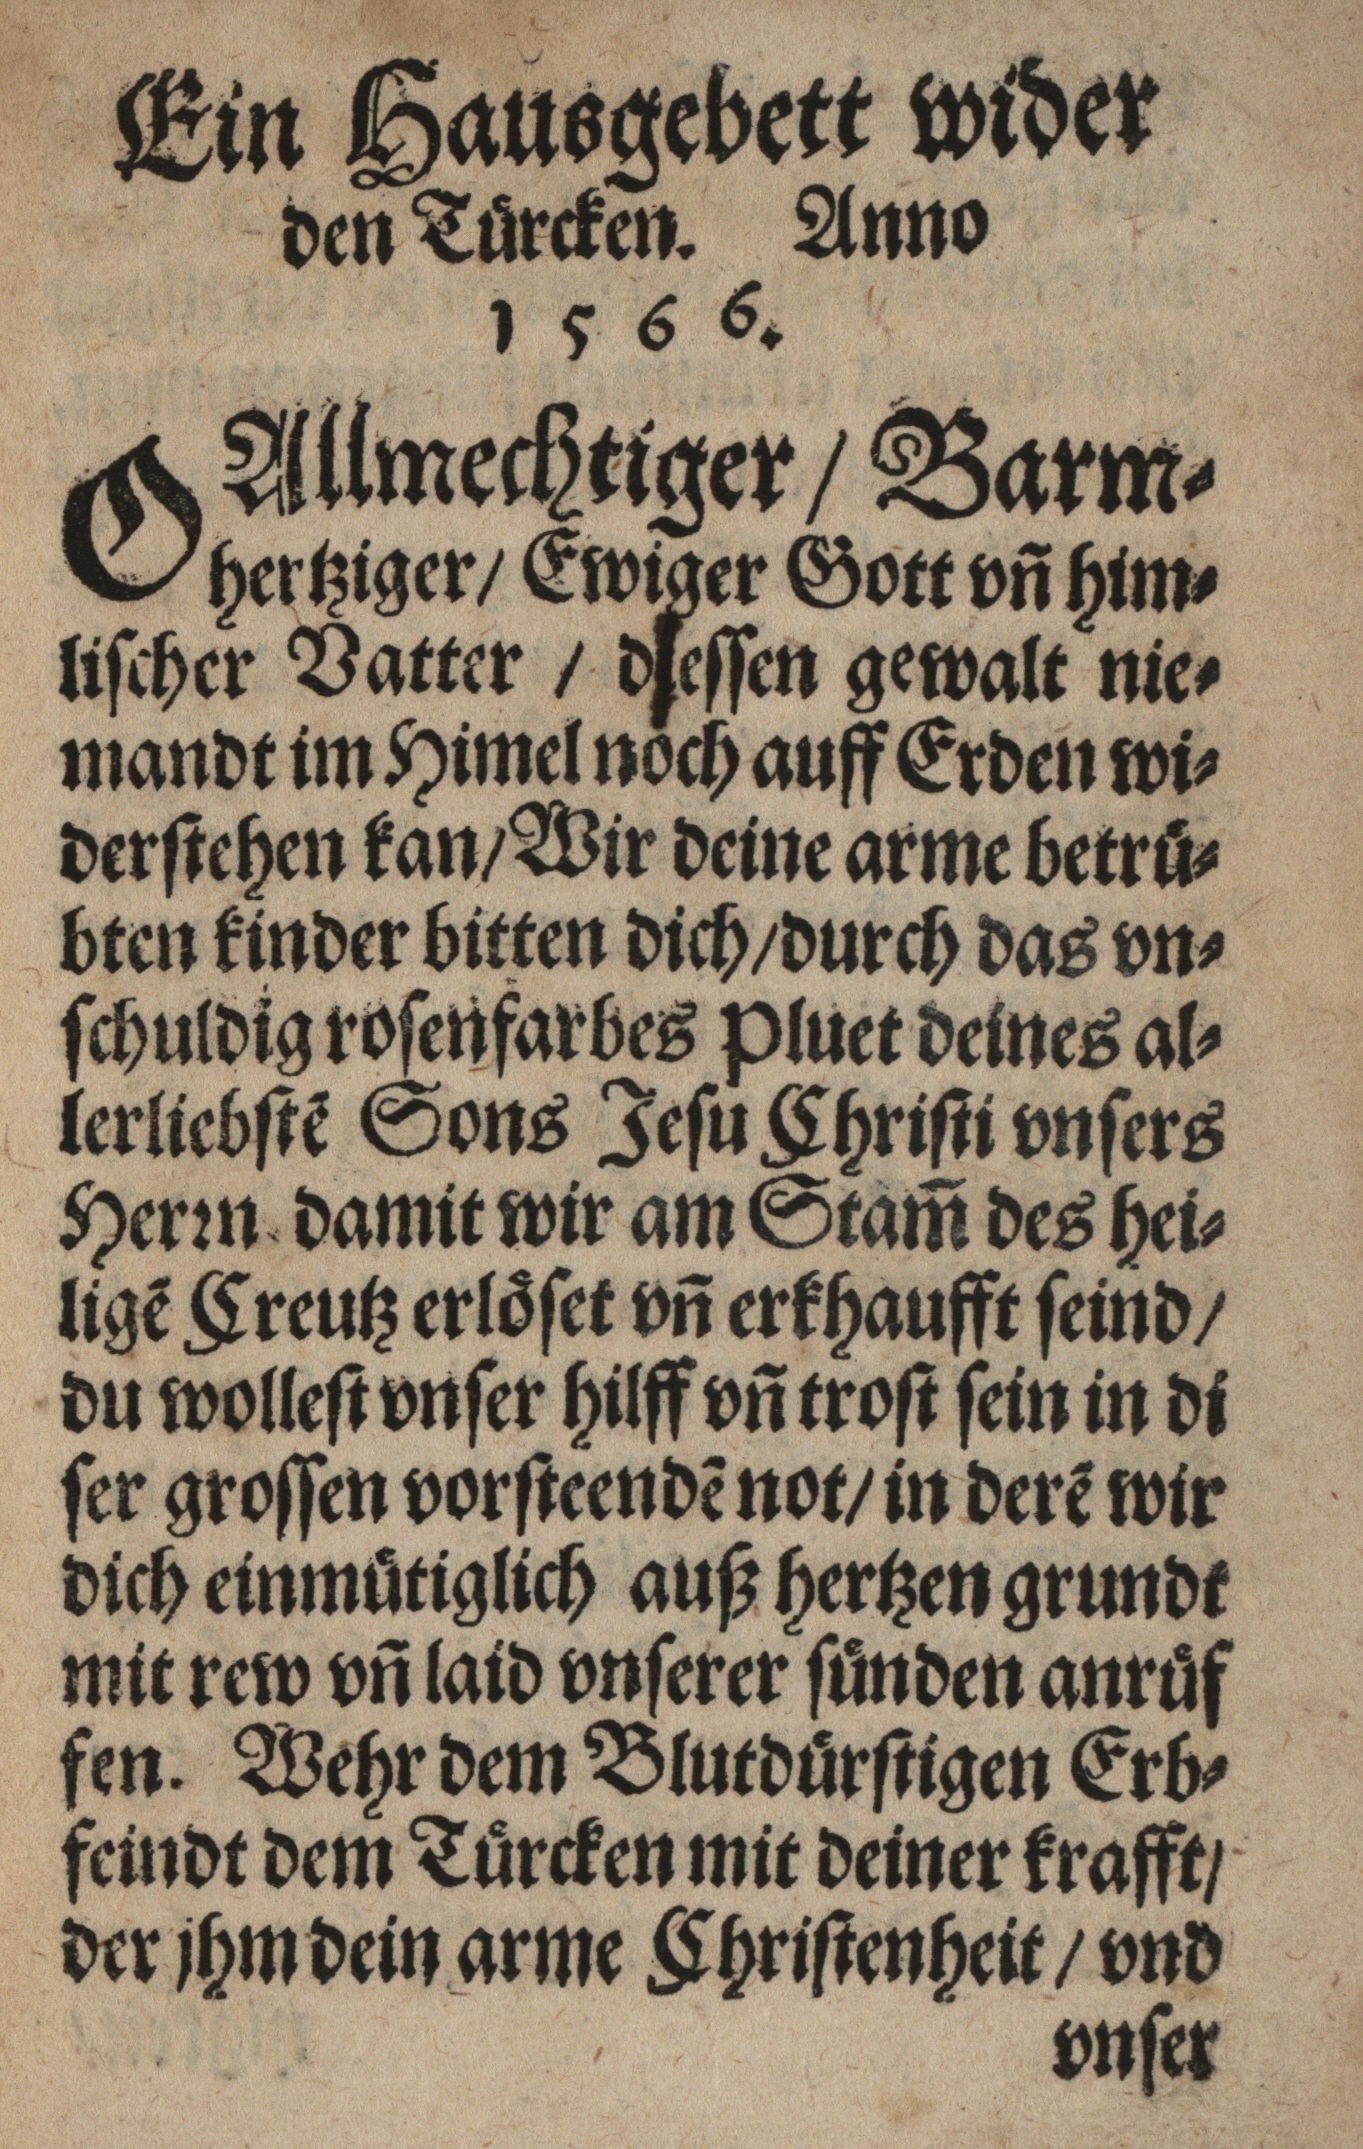 Ein Hausgebett wider
den Tuͤrcken. Anno
1566.
O Allmechtiger / Barm⸗
hertziger / Ewiger Gott vñ him⸗
lischer Vatter / dessen gewalt nie⸗
mandt im Himel noch auff Erden wi⸗
derstehen kan / Wir deine arme betruͤ⸗
bten kinder bitten dich / durch das vn⸗
schuldig rosenfarbes Pluet deines al⸗
lerliebstẽ Sons Jesu Christi vnsers
Herrn damit wir am Stam̃ des hei⸗
ligẽ Creutz erloͤset vñ erkhaufft seind /
du wollest vnser hilff vñ trost sein in di
ser grossen vorsteendẽ not / in derẽ wir
dich einmuͤtiglich auß hertzen grundt
mit rew vñ laid vnserer suͤnden anruͤf
fen. Wehr dem Blutduͤrstigen Erb⸗
feindt dem Tuͤrcken mit deiner krafft /
der jhm dein arme Christenheit / vnd
vnser